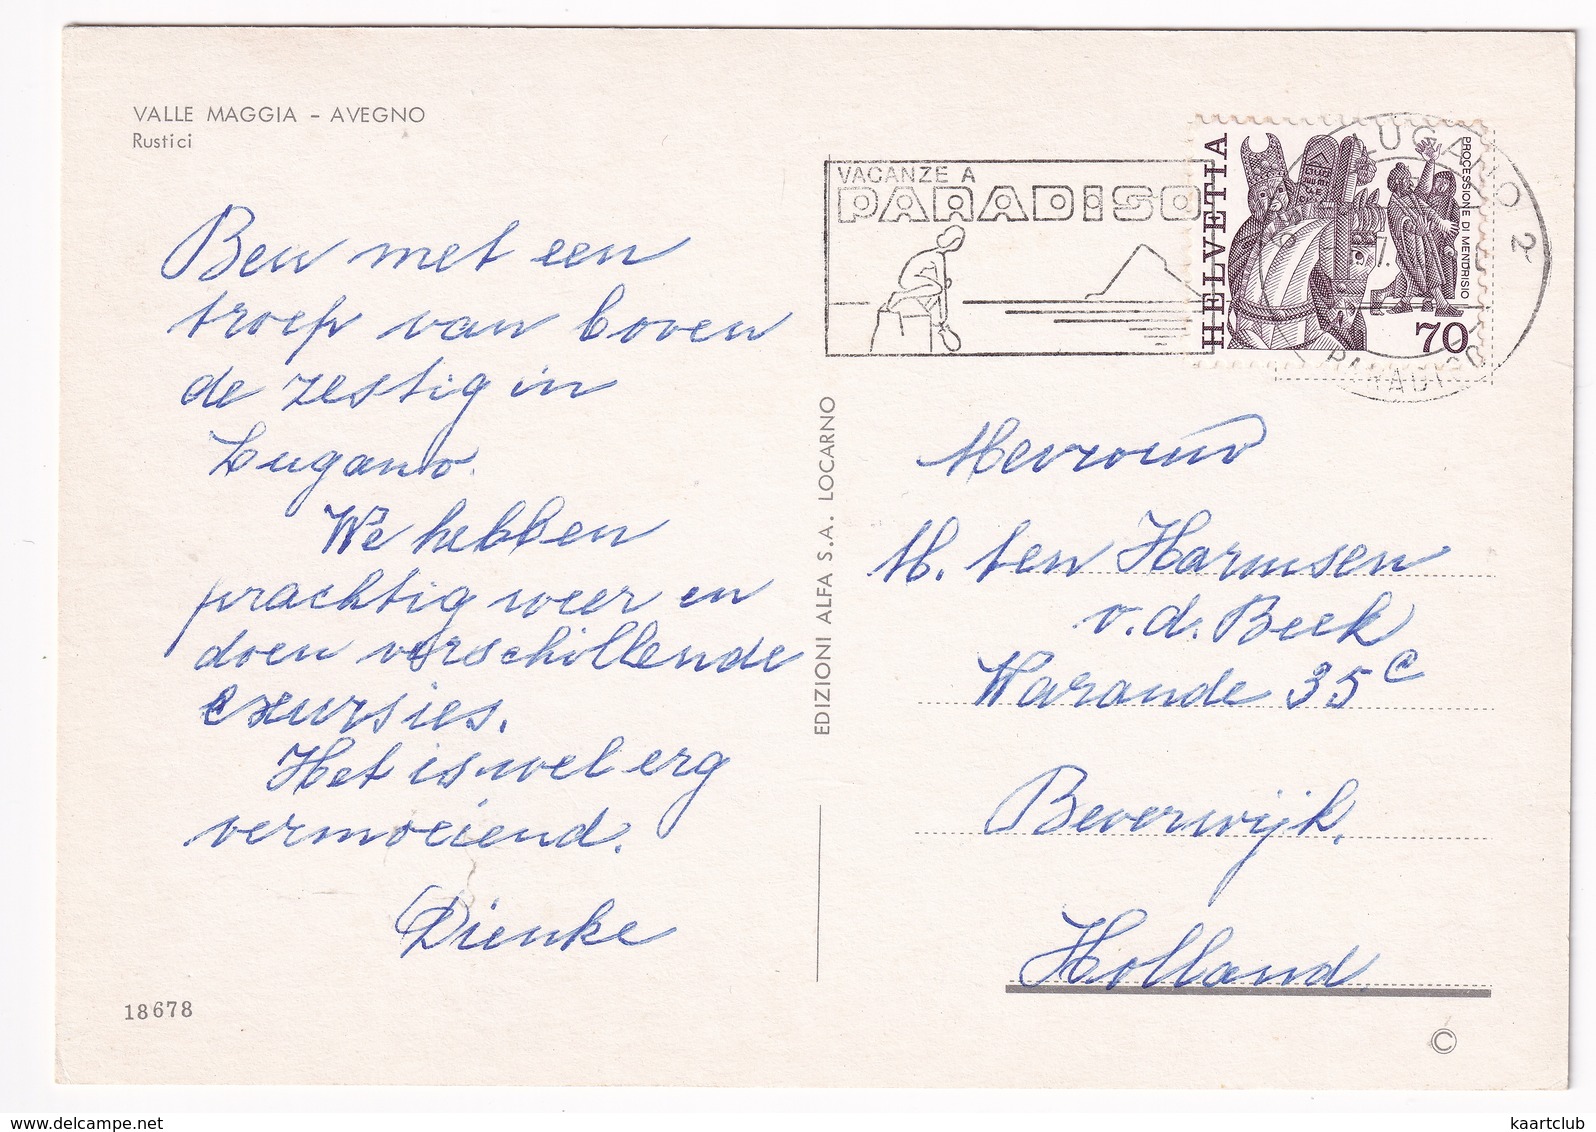 VALLE MAGGIA - AVEGNO
Rustici
Ben met een
troep van boven
de zestig in
Lugano.
We hebben
prachtig weer en
doen verschillende
exursies.
Het is wel erg
vermoeiend.
Dienke
18678
EDIZIONI ALFA S.A. LOCARNO
VACANZE A
PARADISO
HELVETIA
PROCESSIONE DI MENDRISIO
70
LUGANO 2
PARADISO
Mevrouw
M. ten Harmsen
v.d. Beek
Warande 35
Beverwijk.
Holland.
©
delcampe.net
kaartclub